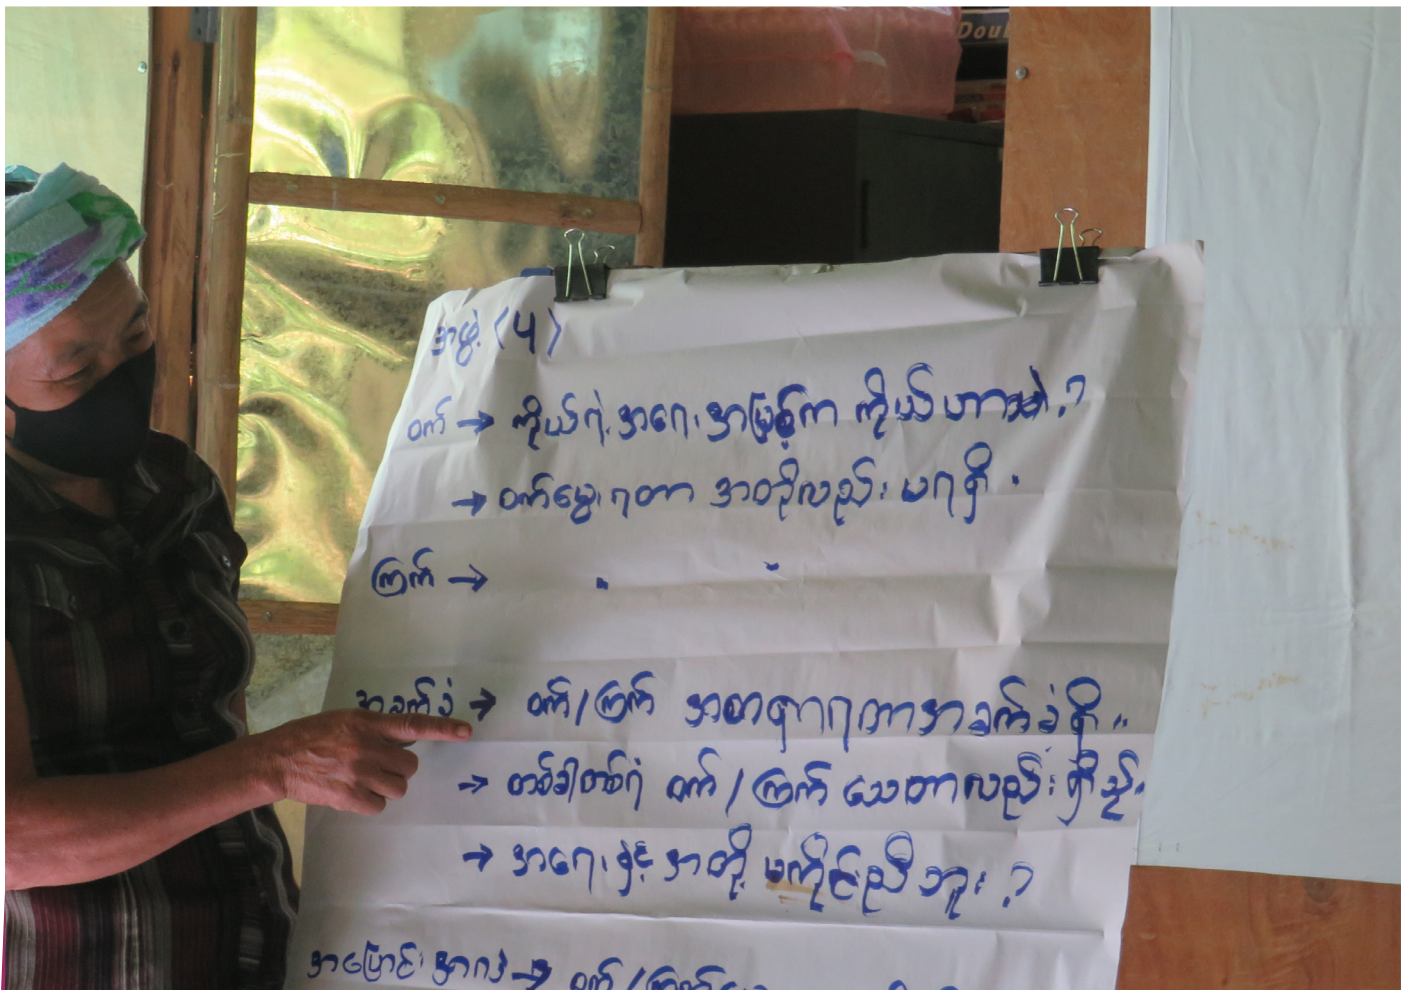 Doubl
အဖွဲ့ (၅)
ဝက် → ကိုယ်ရဲ့ အရေးအမြစ်က ကိုယ်ဟာဘဲ ?
→ ဝက်မွေးရတာ အတိုလည်း မရရှိ .
ကြက် →
အခက်ခဲ → ဝက်/ကြက် အစာရှာရတာအခက်ခဲရှိ ။
→ တစ်ခါတစ်ရံ ဝက် / ကြက် သေတာလည်း ရှိသည်။
→ အရေးနှင့် အတို့ မကိုင်ညီဘူး ?
အပြောင်းအလဲ → ဝက် /